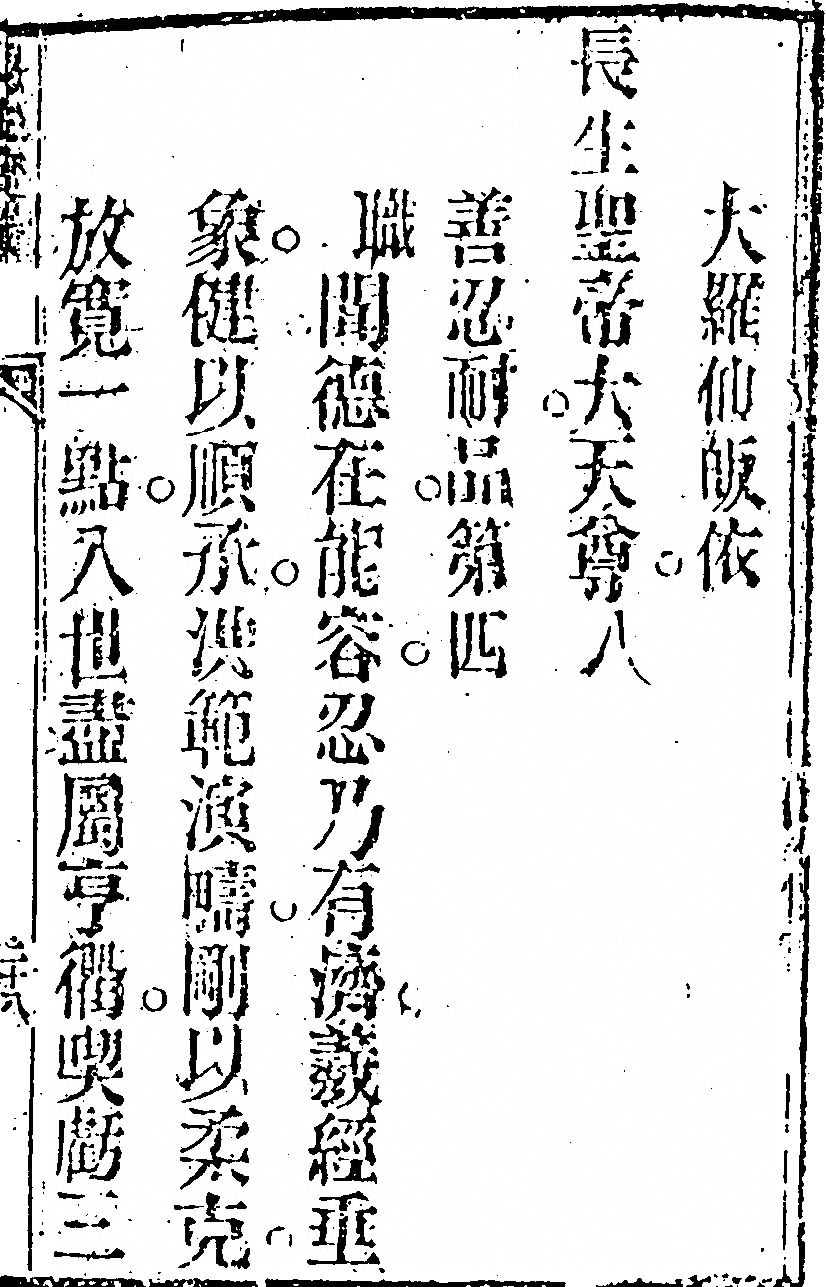 大羅仙皈依
長生聖帝大天尊八
善忍耐品第四
職
聞德在能容忍乃有濟羲經垂
象健以順承洪範演疇剛以柔克
放寬一點入世盡屬亨衢喫虧三